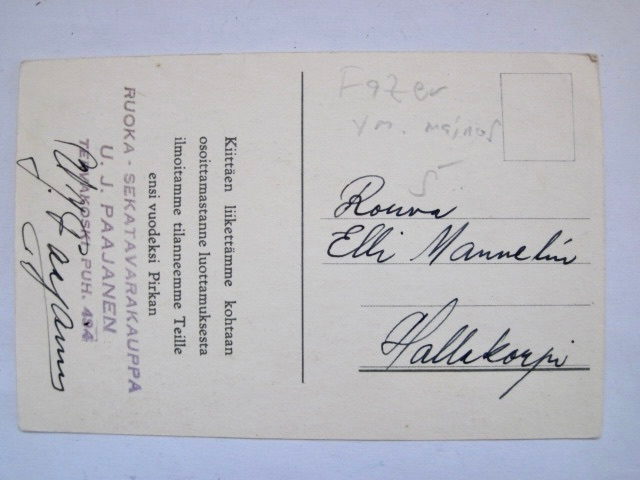 Kiittäen liikettämme kohtaan
osoittamastanne luottamuksesta
ilmoitamme tilanneemme Teille
ensi vuodeksi Pirkan
RUOKA - SEKATAVARAKAUPPA
U. J. PAAJANEN
TERVAKOSKI PUH. 434
U. J. Paajanen
Fazer
ym. mainos
5
Rouva
Elli Mannelin
Hallakorpi